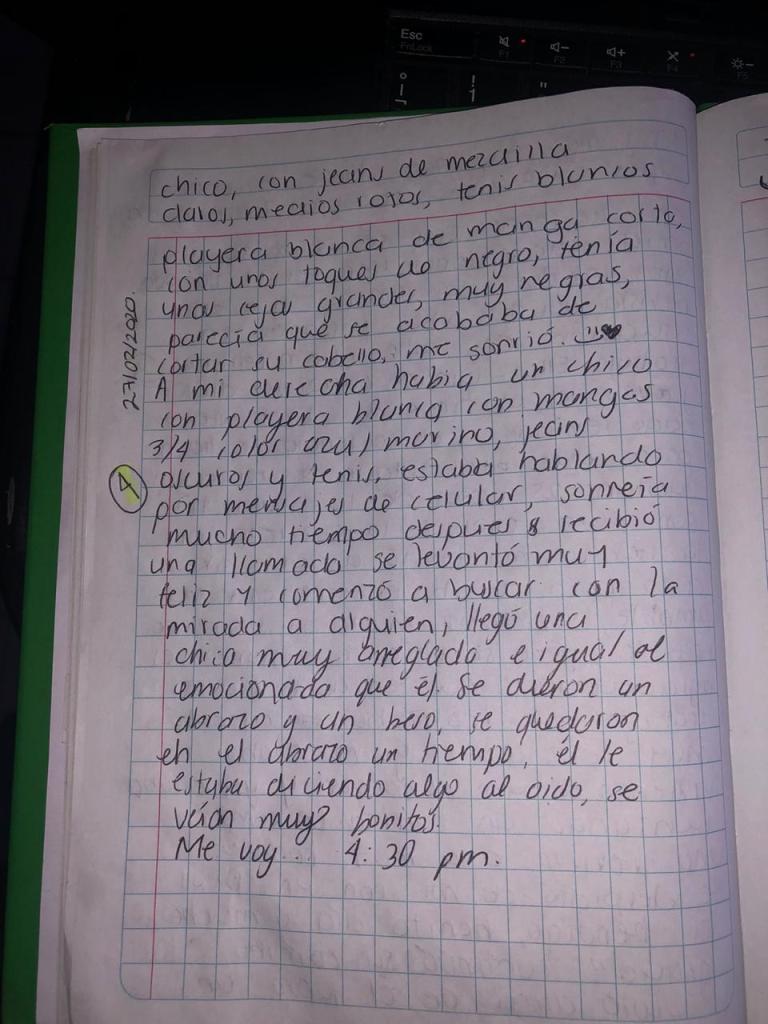 Esc
FnLock
F1
F2
F3
F4
F5
chico, con jeans de mezclilla
claros, medios rotos, tenis blancos
playera blanca de manga corta,
con unos toques de negro, tenía
unas cejas grandes, muy negras,
parecía que se acababa de
cortar su cabello, me sonrió.
A mi derecha había un chico
con playera blanca con mangas
3/4 color azul marino, jeans
oscuros y tenis, estaba hablando
por mensajes de celular, sonreía
mucho tiempo después recibió
una llamada se levantó muy
feliz y comenzó a buscar con la
mirada a alguien, llegó una
chica muy arreglada e igual de
emocionada que él. Se dieron un
abrazo y un beso, se quedaron
en el abrazo un tiempo, él le
estaba diciendo algo al oido, se
veían muy bonitos.
Me voy... 4:30 pm.
27/02/2020.
4